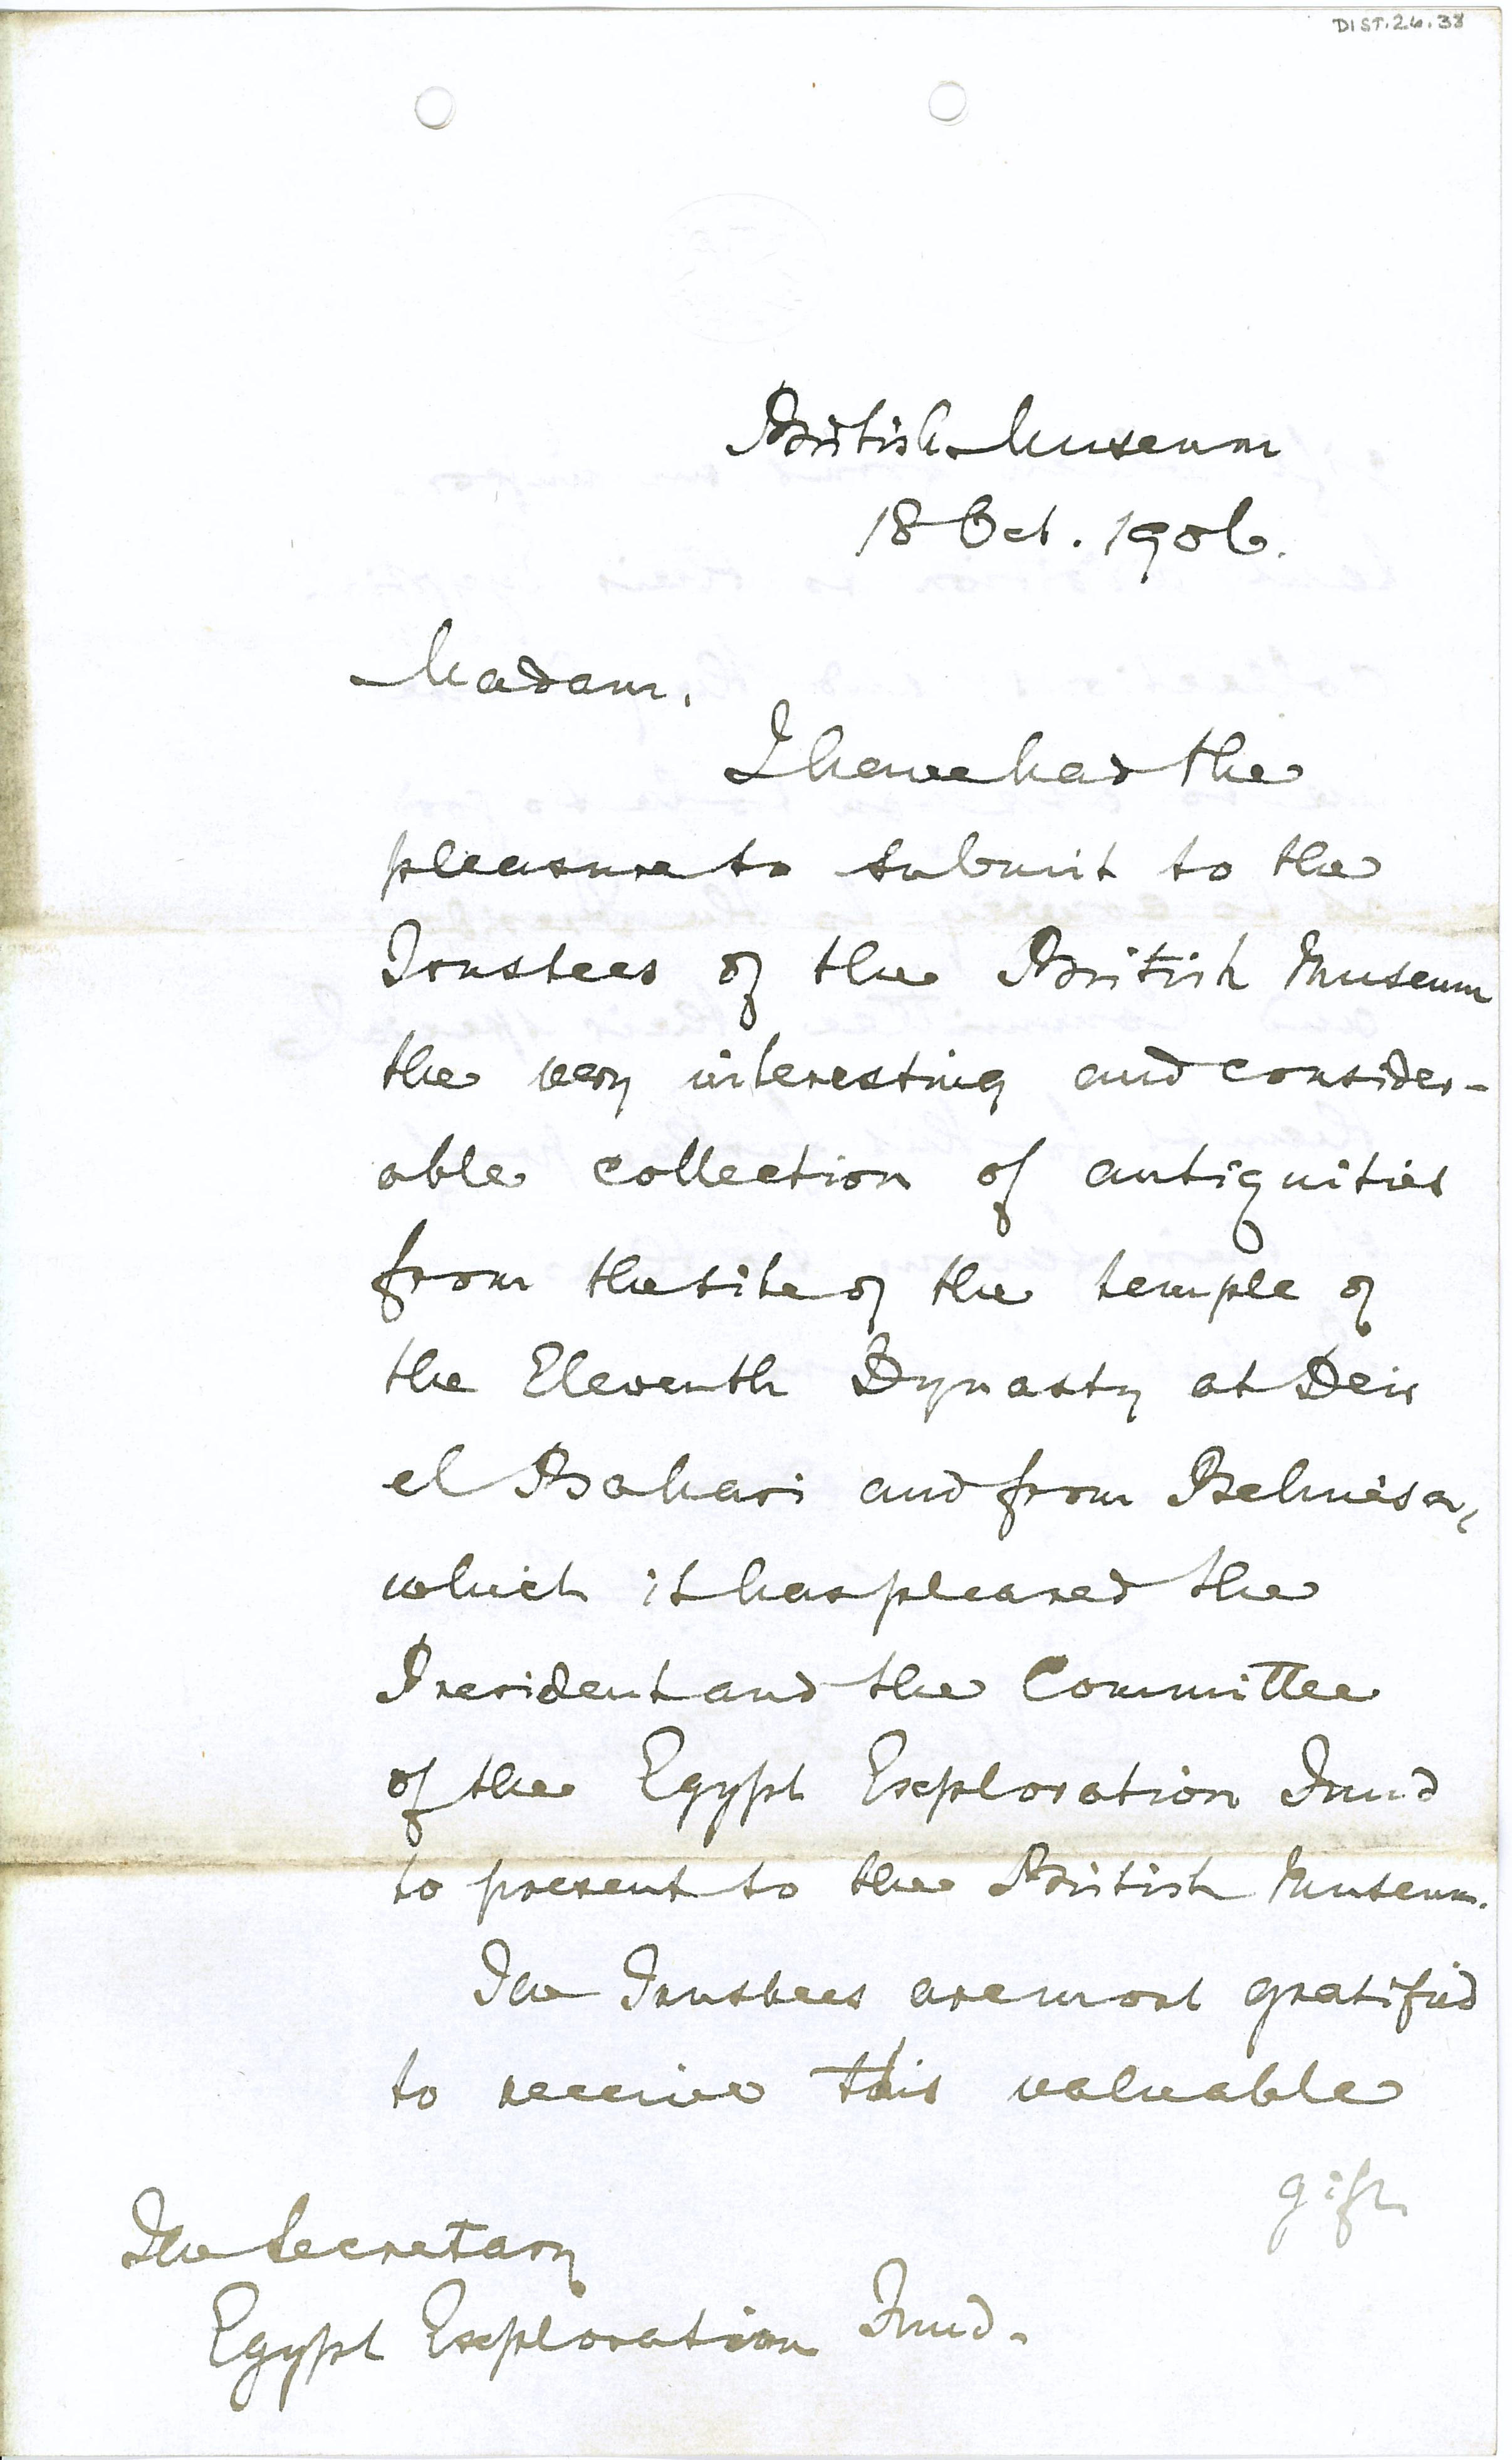 DIST.26.38
British Museum
18 Oct. 1906.
Madam,
I have had the
pleasure to submit to the
Trustees of the British Museum
the very interesting and consider-
able collection of antiquities
from the site of the temple of
the Eleventh Dynasty at Deir
el Bahari and from Behnesa,
which it has pleased the
President and the Committee
of the Egypt Exploration Fund
to present to the British Museum.
The Trustees are most gratified
to receive this valuable
gift
The Secretary
Egypt Exploration Fund.